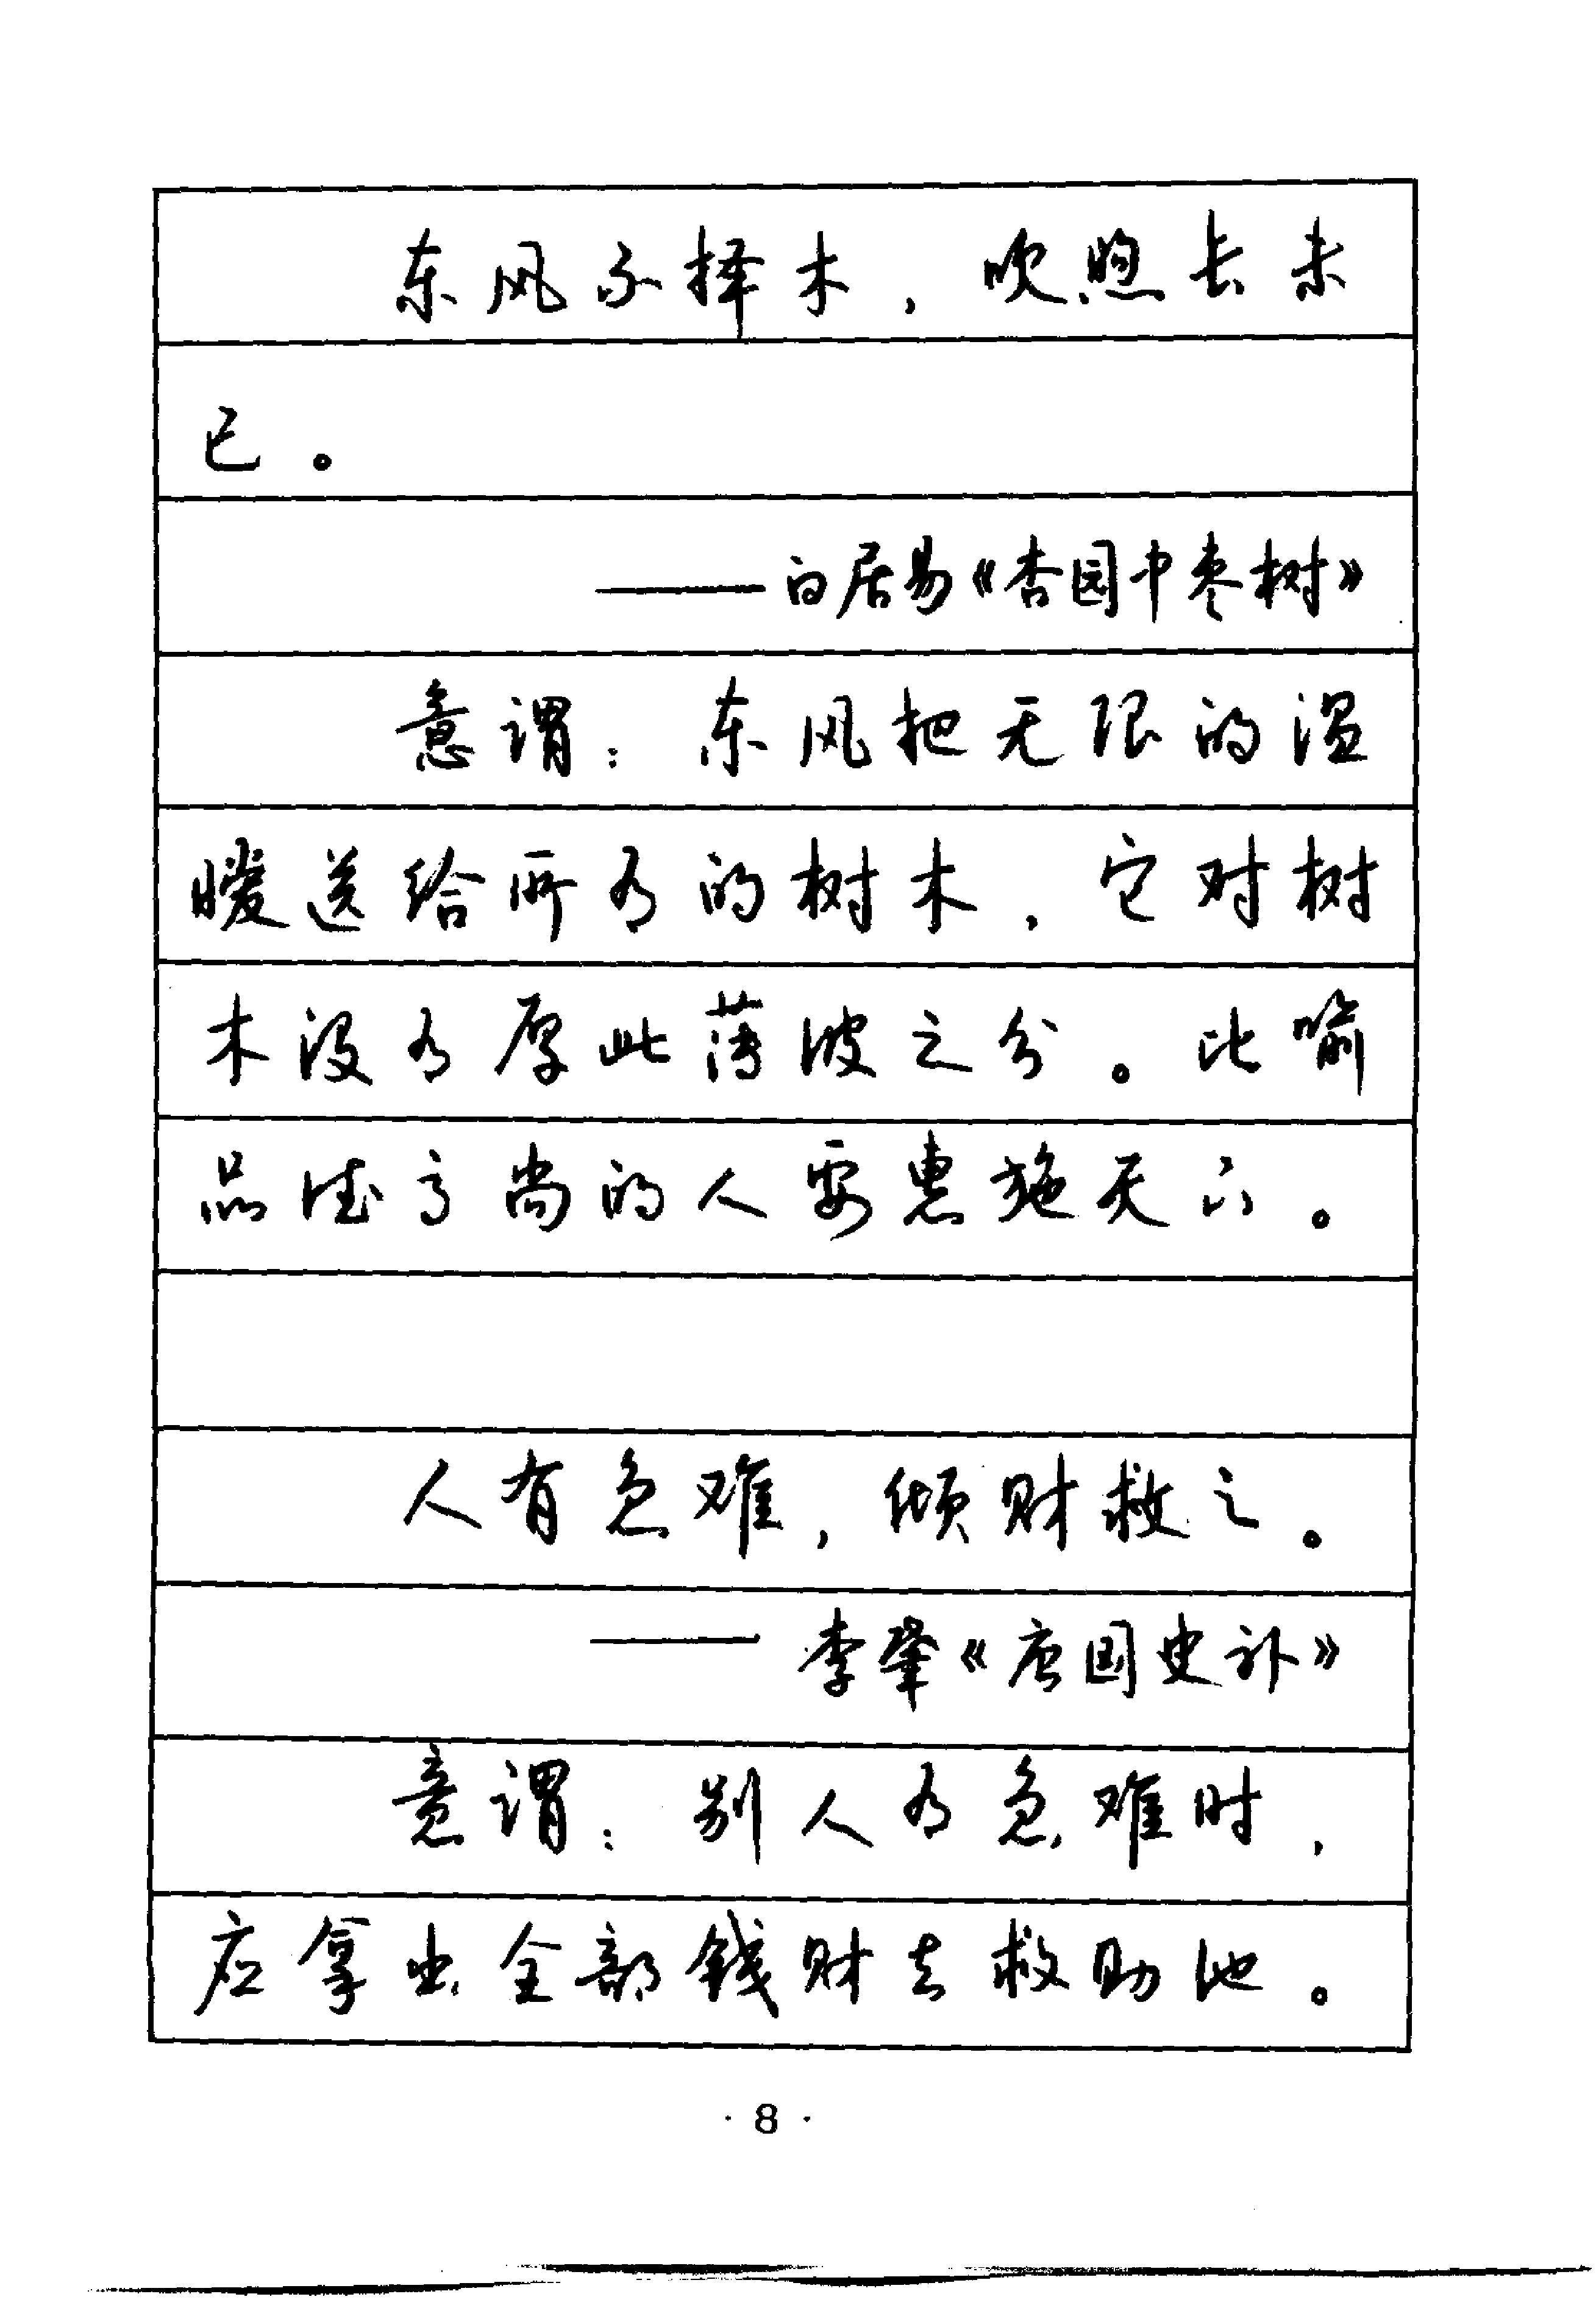 东风不择木，吹煦长未
已。
——白居易《杏园中枣树》
意谓：东风把无限的温
暖送给所有的树木，它对树
木没有厚此薄彼之分。比喻
品德高尚的人要惠施天下。
人有急难，倾财救之。
——李肇《唐国史补》
意谓：别人有急难时，
应拿出全部钱财去救助他。
·8·